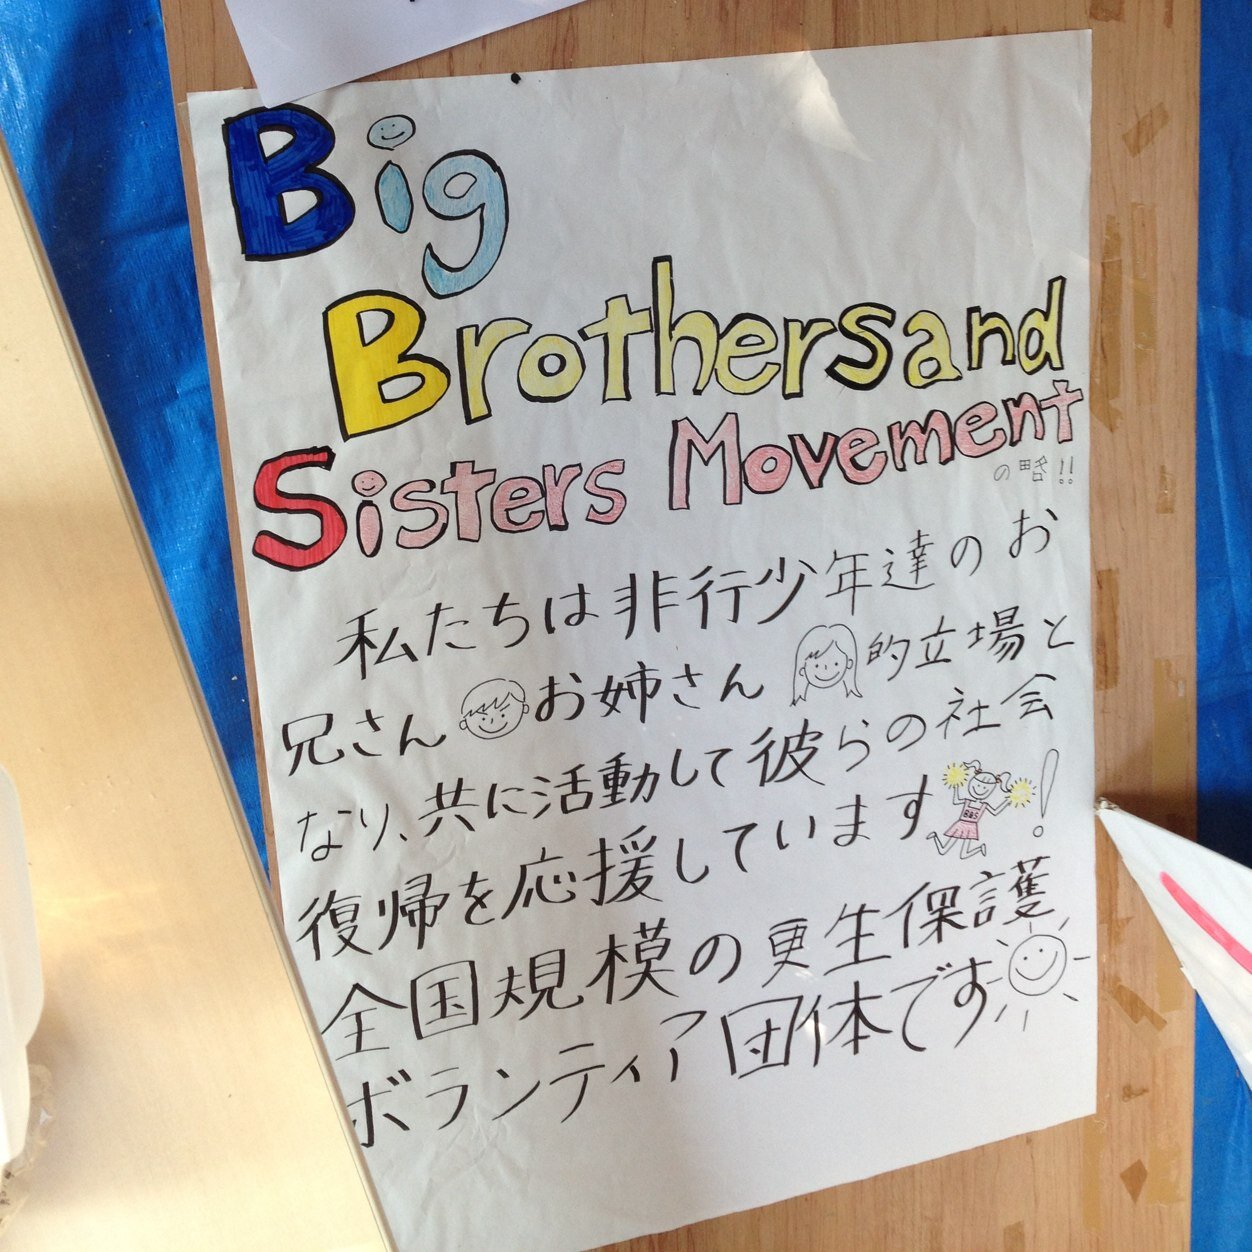 Big
Brothers and
Sisters Movement
の略!!
私たちは非行少年達のお
兄さんお姉さん的立場と
なり、共に活動して彼らの社会
復帰を応援しています!
BBS
全国規模の更生保護
ボランティア団体です